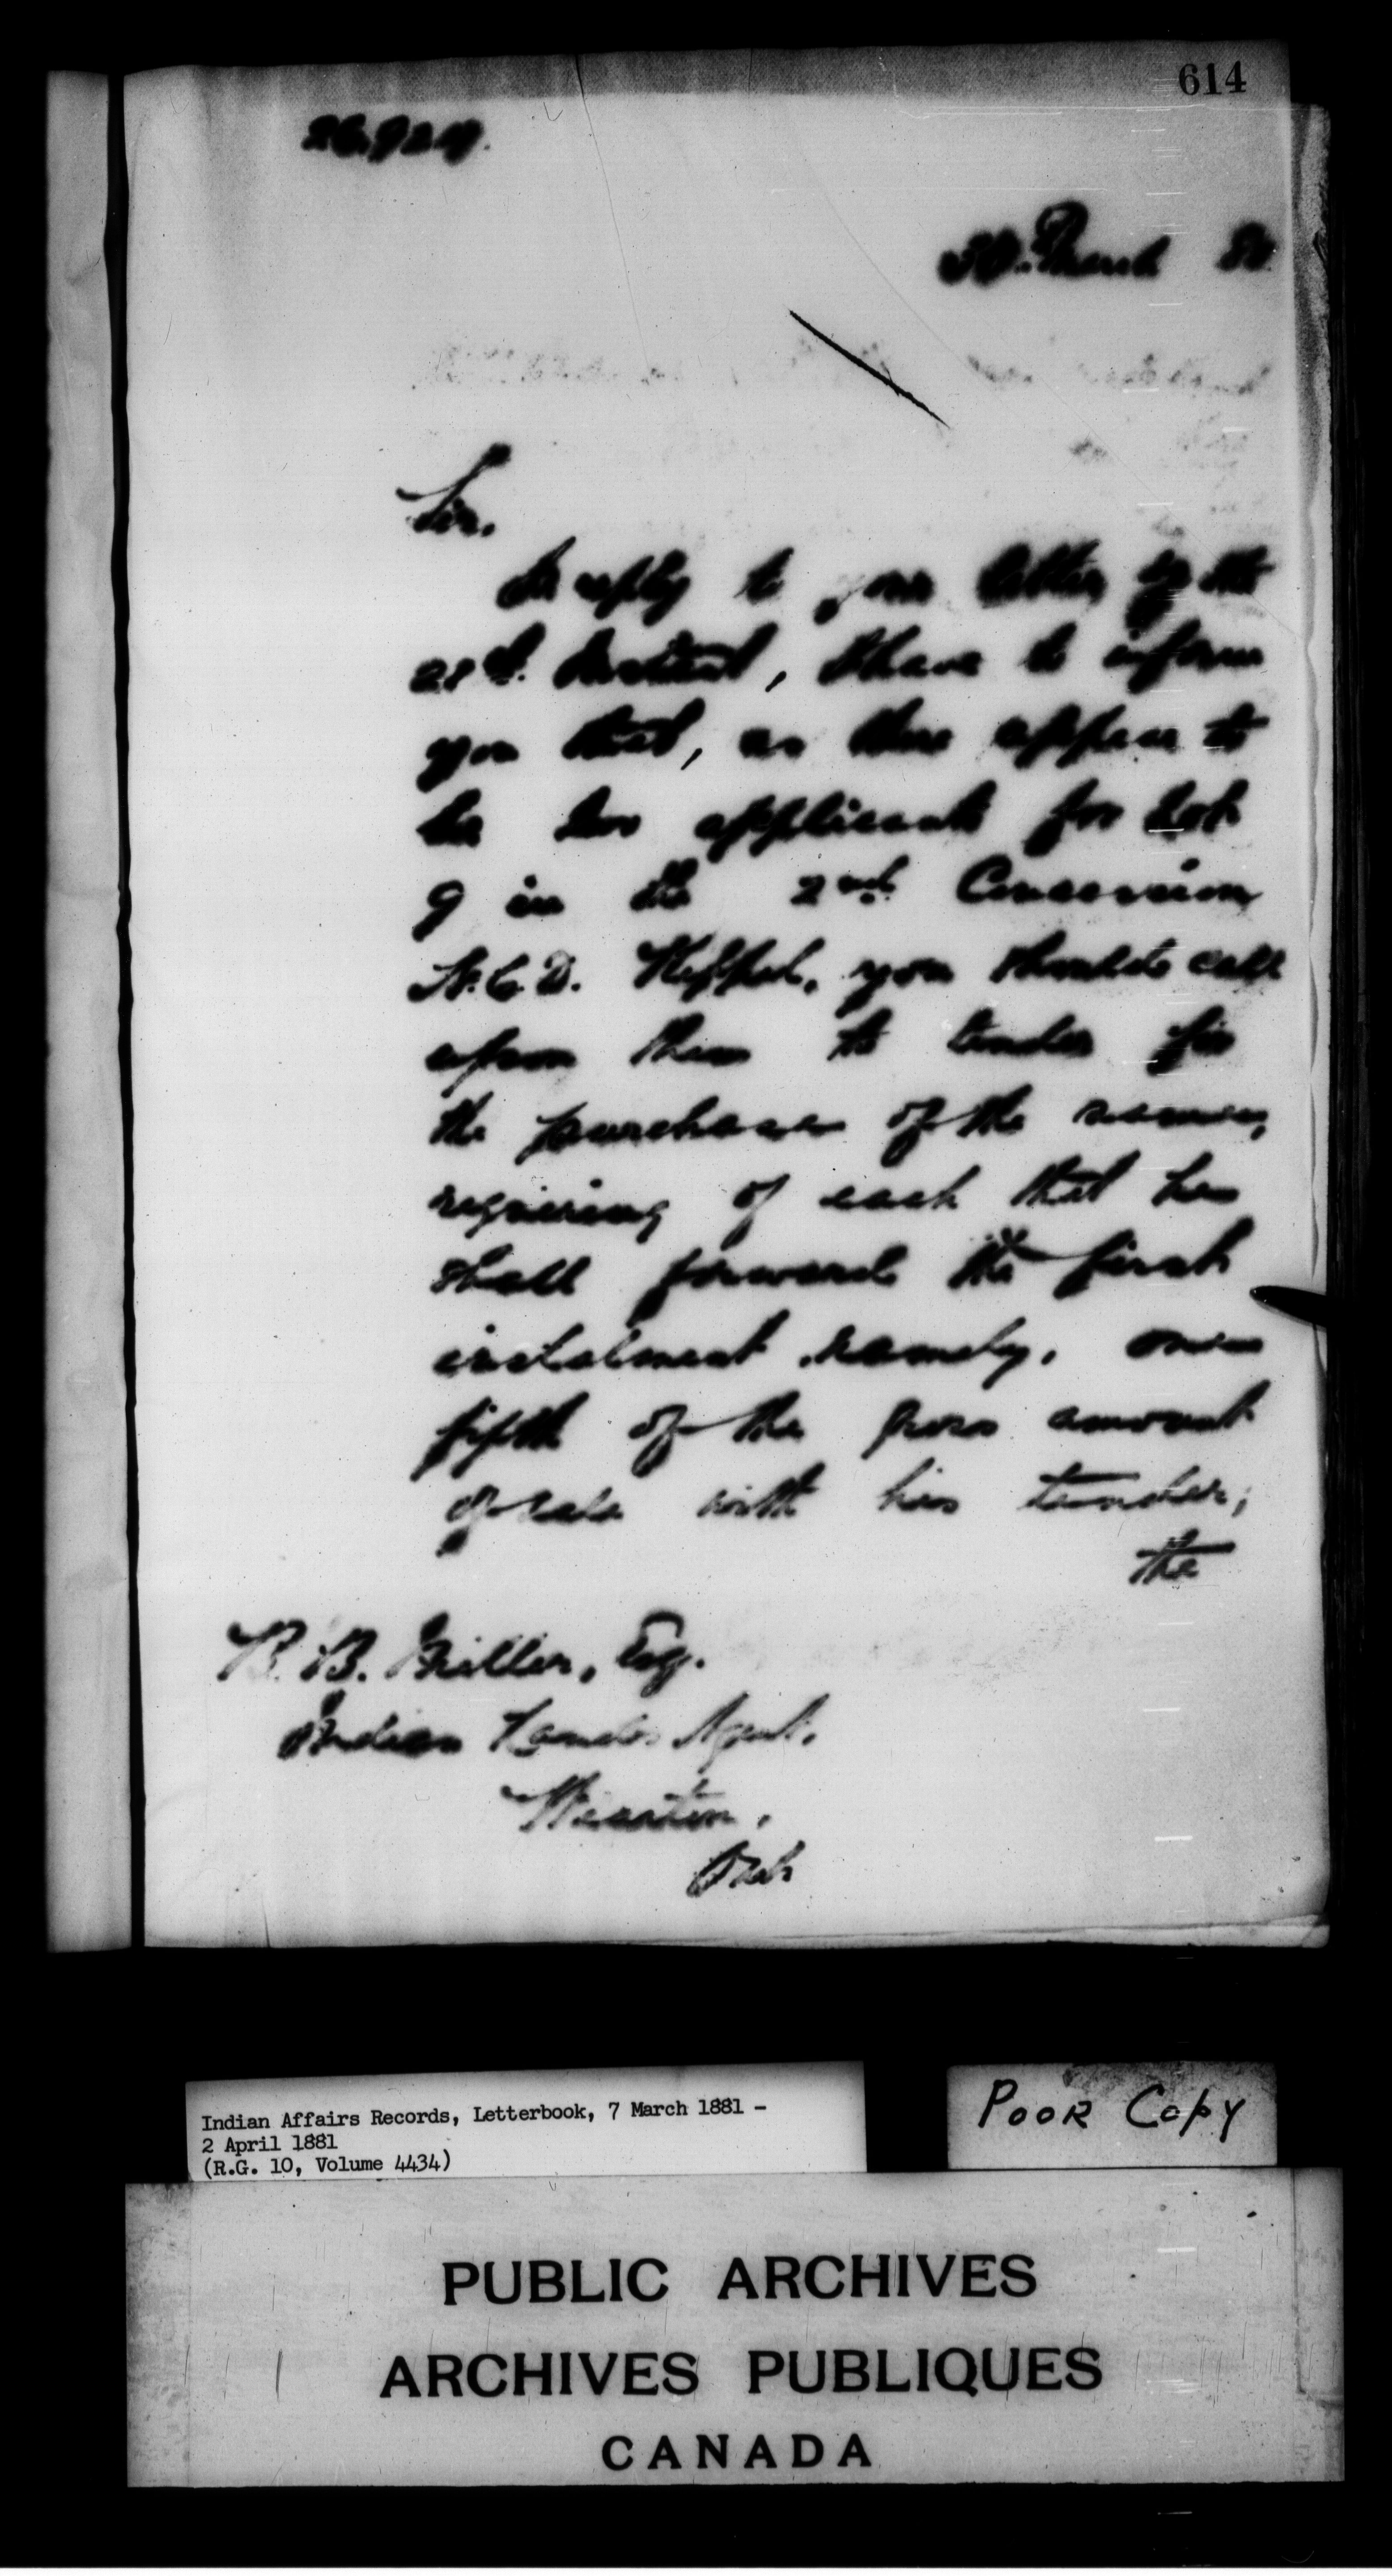 614
26,924.
30. March 81
Sir.
In reply to your letter of the
28th. Instant, I have to inform
you that, as there appear to
be two applicants for Lot
9 in the 2nd. Concession
N.C.D. Keppel, you should call
upon them to tender for
the purchase of the same,
requiring of each that he
shall forward the first
instalment namely, one
fifth of the gross amount
of sale with his tender;
the
B. B. Miller, Esq.
Indian Lands Agent.
Wiarton.
Ont
Indian Affairs Records, Letterbook, 7 March 1881 -
2 April 1881
(R.G. 10, Volume 4434)
POOR COPY
PUBLIC ARCHIVES
ARCHIVES PUBLIQUES
CANADA